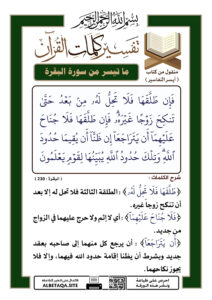 بسم الله الرحمن الرحيم
تفسير كلمات القرآن
ما تيسر من سورة البقرة
منقول من كتاب
( أيسر التفاسير )
فَإِن طَلَّقَهَا فَلَا تَحِلُّ لَهُۥ مِنۢ بَعْدُ حَتَّىٰ
تَنكِحَ زَوْجًا غَيْرَهُۥ فَإِن طَلَّقَهَا فَلَا جُنَاحَ
عَلَيْهِمَآ أَن يَتَرَاجَعَآ إِن ظَنَّآ أَن يُقِيمَا حُدُودَ
ٱللَّهِ وَتِلْكَ حُدُودُ ٱللَّهِ يُبَيِّنُهَا لِقَوْمٍ يَعْلَمُونَ
شرح الكلمات :
( البقرة : 230 )
﴿طَلَّقَهَا فَلَا تَحِلُّ لَهُ﴾ : الطلقة الثالثة فلا تحل له إلا بعد
أن تنكح زوجا غيره.
﴿فَلَا جُنَاحَ عَلَيْهِمَآ﴾ : أي لا إثم ولا حرج عليهما في الزواج
من جديد.
﴿أَن يَتَرَاجَعَآ﴾ : أن يرجع كل منهما إلى صاحبه بعقد
جديد وبشرط أن يظنا إقامة حدود الله فيهما، وإلا فلا
يجوز نكاحهما.
ALBETAQA.SITE